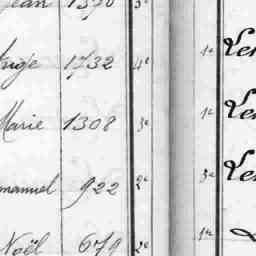 Jean 1370 3e
Ange 1732 4e 1e Ver
Marie 1308 3e 1e Ver
manuel 922 2e 3e Ver
Noël 679 2e 1e